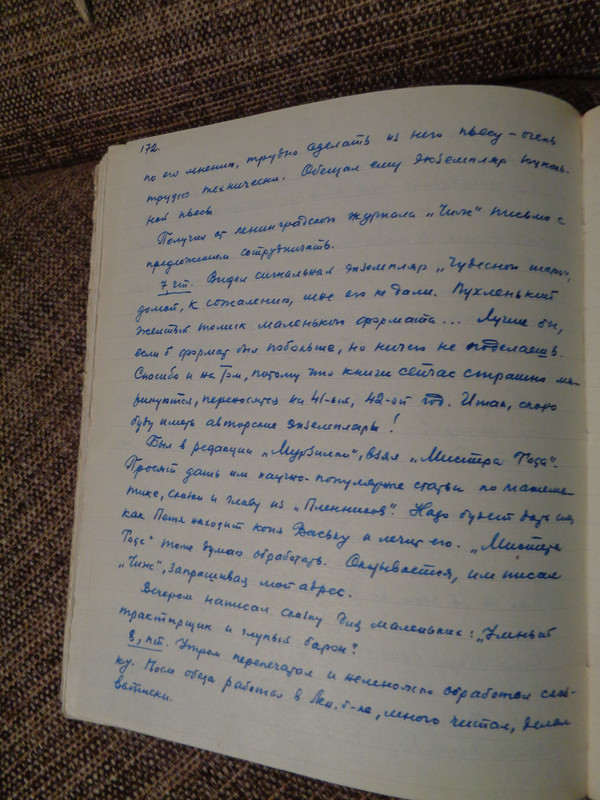 172.
по его мнению, трудно сделать из него пьесу – очень
трудно технически. Обещал ему экземпляр куколь-
ной пьесы
Получил от ленинградского журнала „Чиж" письмо с
предложением сотрудничать.
7, чт. Видел сигнальный экземпляр „Чудесного шара",
домой, к сожалению, мне его не дали. Пухленький
желтый томик маленького формата... Лучше бы,
если б формат был побольше, но ничего не поделаешь.
Спасибо и на том, потому что книги сейчас страшно ма-
ринуются, переносятся на 41-ый, 42-ой год. Итак, скоро
буду иметь авторские экземпляры!
Был в редакции „Мурзилки", взял „Мистера Тода".
Просят дать им научно-популярные статьи по матема-
тике, сказки и главу из „Пленников". Надо будет дать им,
как Петя находит коня Ваську и лечит его. „Мистера
Тода" тоже думаю обработать. Оказывается, им писал
„Чиж", запрашивая мой адрес.
Вечером написал сказку для маленьких: „Умный
трактирщик и глупый барон".
8, пт. Утром перепечатал и немножко обработал сказ-
ку. После обеда работал в Лен. б-ке, много читал, делал
выписки.